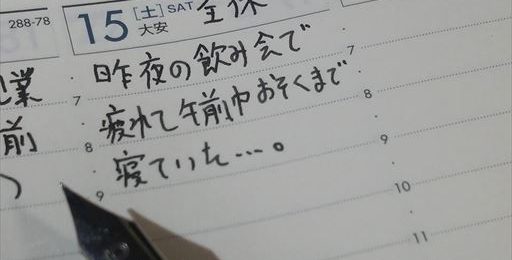 288-78
15 [土] SAT 全休
大安
業
7 昨夜の飲み会で 7
前
8 疲れて午前中おそくまで 8
寝ていた…。 9
9
10
11